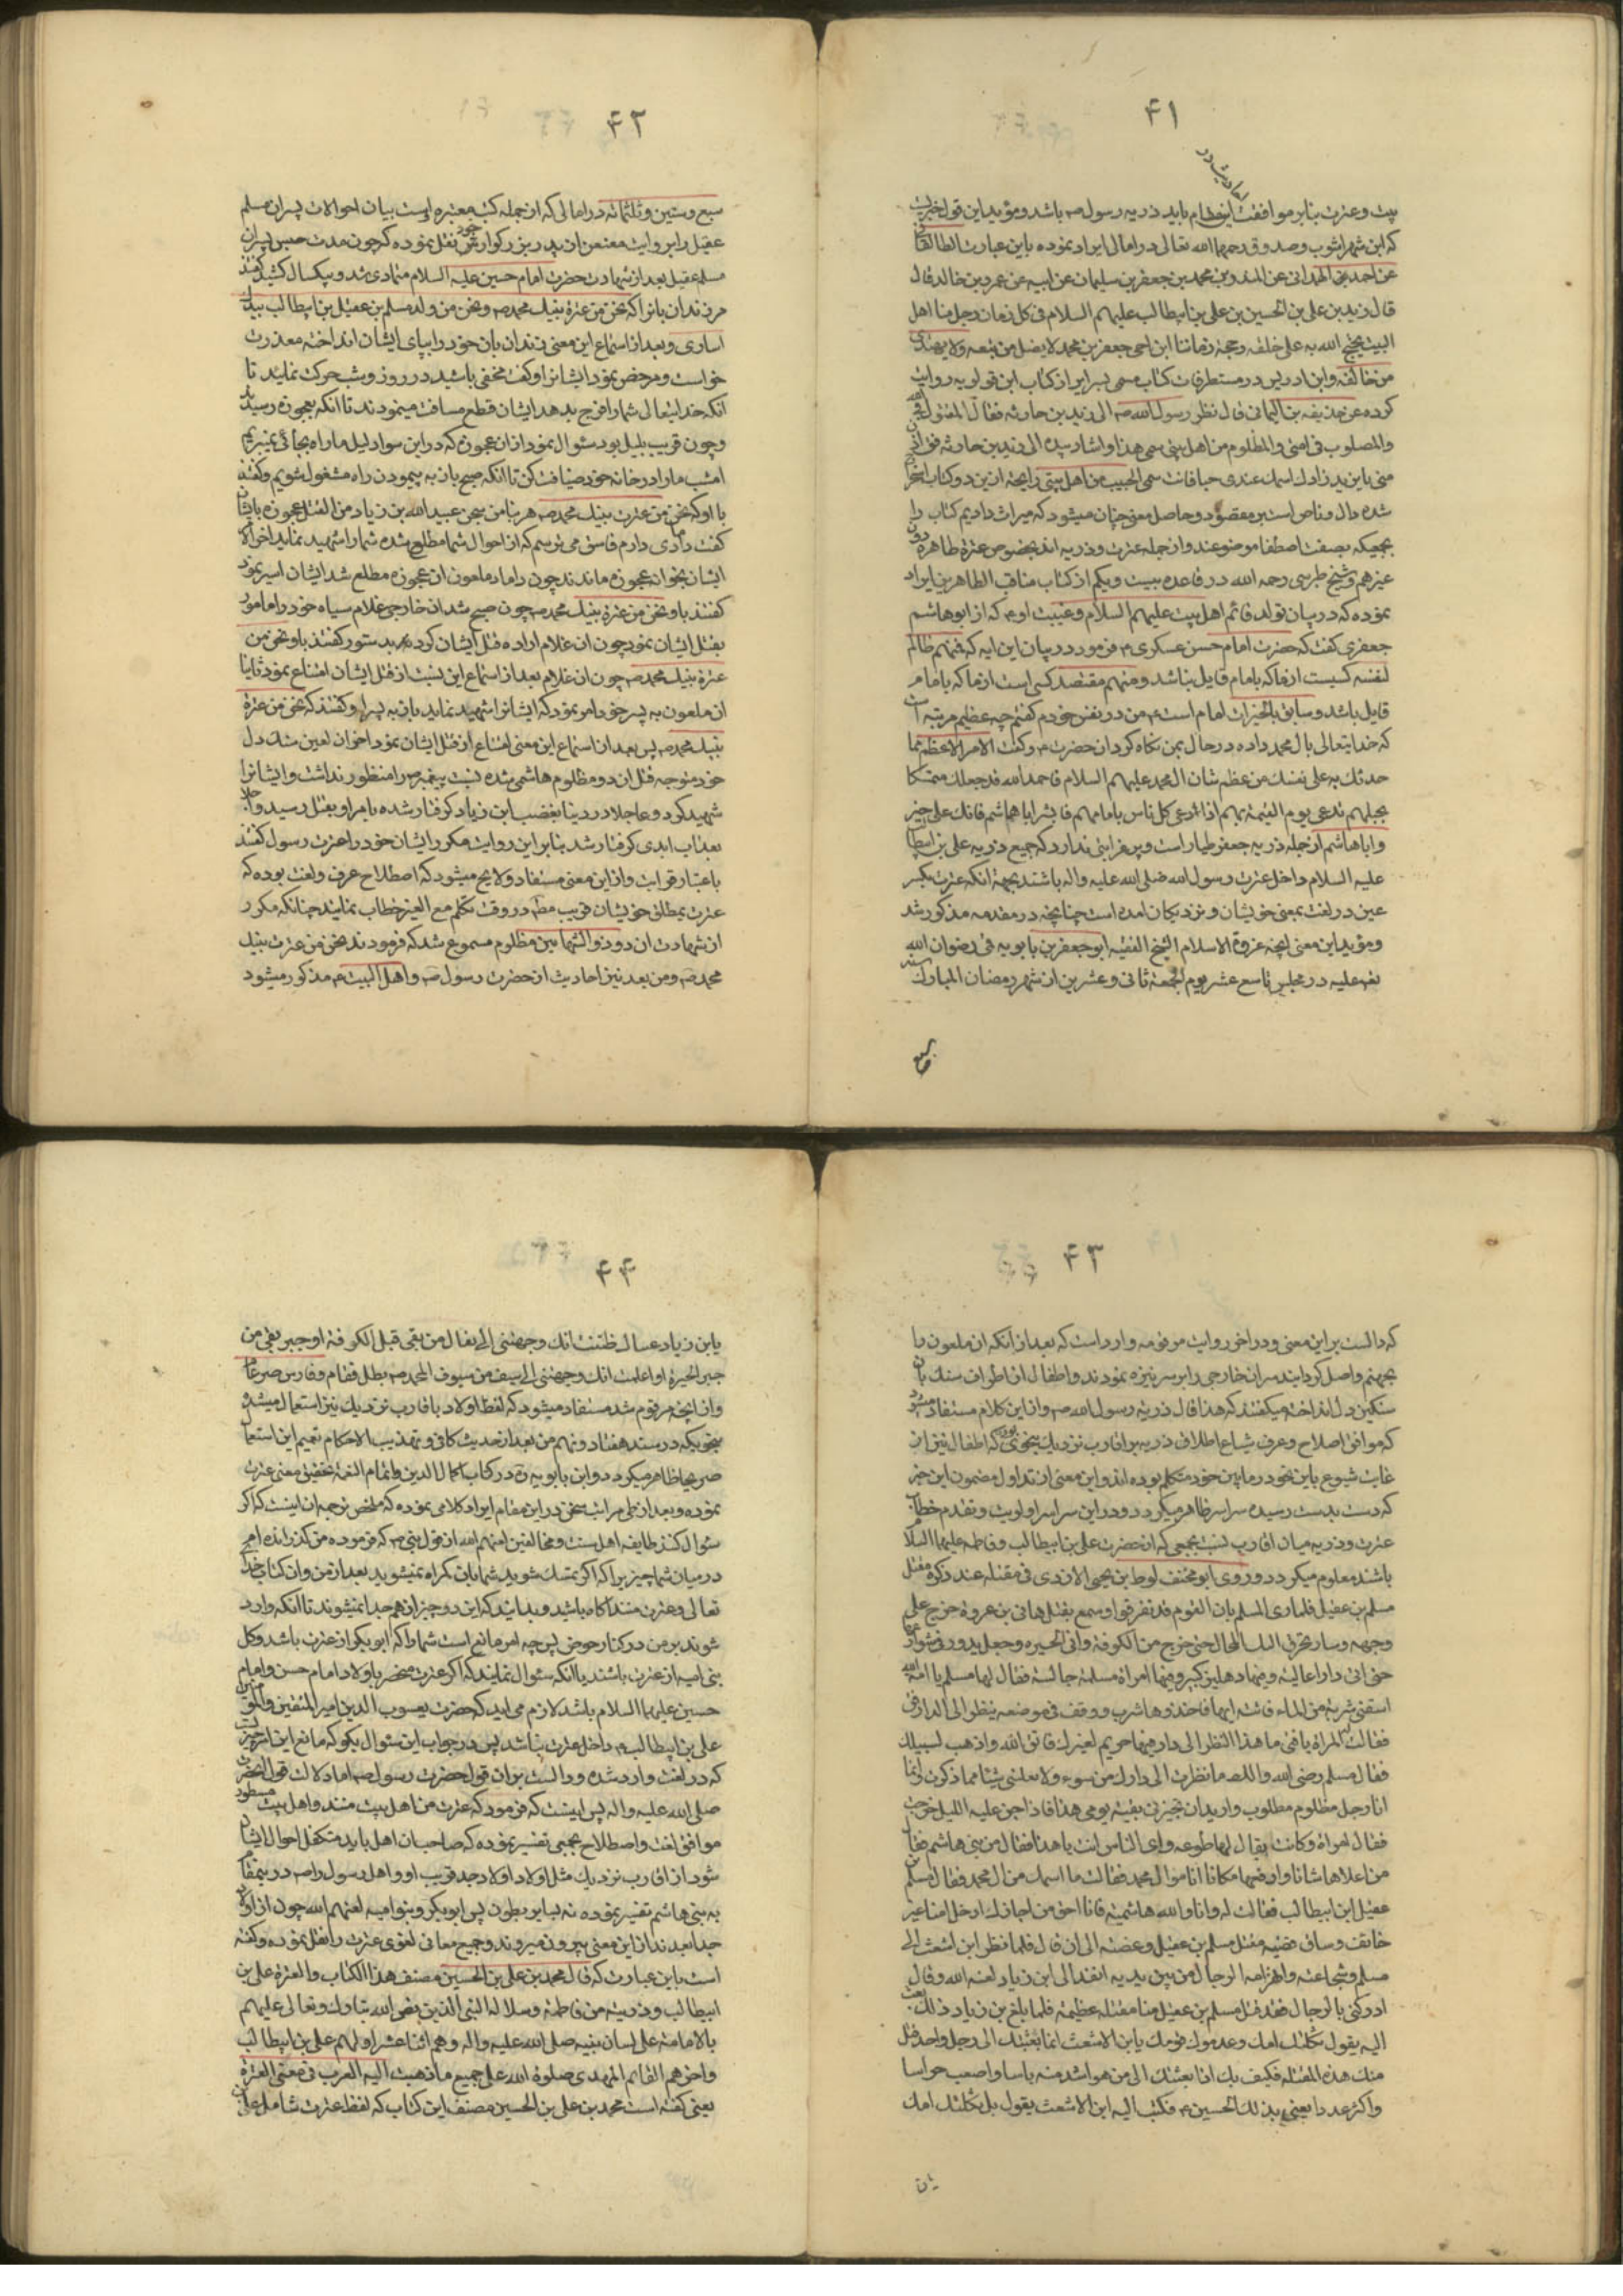 ۴۱
احادیث در
بیت وعترت بنابر موافقت این مقام باید ذریه رسول ص باشد ومؤید این قول خبریست
که ابن شهراشوب وصدوق رحمهما الله تعالی در امالی ایراد نموده باین عبارت الطالقانی
عن احمد الهمدانی عن المنذر بن محمد بن جعفر بن سلیمان عن ابیه عن عمرو بن خالد قال
قال زید بن علی بن الحسین بن علی بن ابیطالب علیهم السلام فی کل زمان رجل منا اهل
البیت یحتج الله به علی خلقه وحجة زماننا ابن اخی جعفر بن محمد لا یضل من تبعه ولا یهتدی
من خالفه وابن ادریس در مستطرفات کتاب مسمی بسرایر از کتاب ابن قولویه روایت
کرده عن حذیفه بن الیمانی قال نظر رسول الله ص الی زید بن حارثه فقال المقتول فی الله
والمصلوب فی امتی والمظلوم من اهل بیتی سمی هذا واشار بیده الی زید بن حارثه فقال ادن
منی یا زید زادك اسمك عندی حبا فانت سمی الحبیب من اهل بیتی وانچه ازین دو کتاب استخراج
شده دال وناص است بر مقصود وحاصل معنی چنان میشود که میراث دادیم کتاب را
بجمعیکه بصفت اصطفا موصوفند واز جمله عترت وذریه اند بخصوص عترة طاهره دون
غیرهم وشیخ طبرسی رحمه الله در قاعده بیست ویکم از کتاب مناقب الطاهرین ایراد
نموده که در بیان تولد قائم اهل بیت علیهم السلام وغیبت او ع که از ابوهاشم
جعفری گفت که حضرت امام حسن عسکری ع فرمود در بیان این ایه که فمنهم ظالم
لنفسه کسیست از ما که بامام قایل نباشد ومنهم مقتصد کسی است از ما که بامام
قایل باشد وسابق بالخیرات امام است ع من در نفس خودم گفتم چه عظیم مرتبه است
که خدایتعالی بال محمد داده در حال بمن نگاه کرد ان حضرت ع وگفت الامر الاعظم مما
حدثك به علی نفسك من عظم شان ال محمد علیهم السلام فاحمد الله فقد جعلك متمسکا
بحبلهم تدعی یوم القیمة بهم اذا ادعی کل ناس بامامهم فابشر ابا هاشم فانك علی خیر
وابا هاشم از جمله ذریه جعفر طیار است وپرظاهر ابنی ندارد که جمیع ذریه علی بن ابیطالب
علیه السلام داخل عترت رسول الله صلی الله علیه واله باشند بجهة انکه عترت بکسر
عین در لغت بمعنی خویشان ونزدیکان امده است چنانچه در مقدمه مذکور شد
ومؤید این معنی انچه عزوة الاسلام الشیخ الفقیه ابوجعفر بن بابویه قمی رضوان الله
تعالی علیه در مجلس تاسع عشر یوم الجمعة ثانی وعشرین از شهر رمضان المبارك سنه
سبع
۴۲
سبع وستین وثلثمائه در امالی که از جمله کتب معتبره است بیان احوالات پسران مسلم
عقیل را بروایت معنعن از پدر بزرکوارش خود نقل نموده که چون مدت حبس پسران
مسلم عقیل بعد از شهادت حضرت امام حسین علیه السلام متمادی شد وبیکسال کشید گفتند
مر زندان بانرا که نحن من عترة نبیك محمد ص ونحن من ولد مسلم بن عقیل بن ابیطالب بیدك
اساری وبعد از استماع این معنی زندان بان خود را بپای ایشان انداخته معذرت
خواست ومرخص نمود ایشانرا وگفت مخفی باشید در روز وشب حرکت نمایند تا
انکه خدایتعالی شما را فرج بدهد ایشان قطع مسافت مینمودند تا انکه بعجوزه رسیدند
وچون قریب بلیل بود سؤال نمود از ان عجوزه که در این سواد لیل ما راه بجائی نمیبریم
امشب ما را در خانه خود ضیافت کن تا انکه صبح باز به پیمودن راه مشغول شویم وگفتند
با او که نحن من عترت نبیك محمد ص هربنا من سجن عبیدالله بن زیاد من القتل عجوزه بایشان
گفت دامادی دارم فاسق می ترسم که از احوال شما مطلع شده شما را شهید نماید اخر الامر
ایشان بخوانه عجوزه ماندند چون داماد ملعون ان عجوزه مطلع شد ایشان اسیر نمود
گفتند باو نحن من عترة نبیك محمد ص چون صبح شد ان خارجی غلام سیاه خود را مامور
بقتل ایشان نمود چون ان غلام اراده قتل ایشان کرد بدستور گفتند باو نحن من
عترة نبیك محمد ص چون ان غلام بعد از استماع این نسبت از قتل ایشان امتناع نمود ثانیا
ان ملعون به پسر خود امر نمود که ایشانرا شهید نماید باز به پسر او گفتند که نحن من عترة
نبیك محمد ص پس بعد از استماع این معنی امتناع از قتل ایشان نمود اخر ان لعین سنك دل
خود متوجه قتل ان دو مظلوم هاشمی شده نسبت پیغمبر ص را منظور نداشت وایشانرا
شهید کرد وعاجلا در دنیا بغضب ابن زیاد گرفتار شده بامر او بقتل رسید واجلا
بعذاب ابدی گرفتار شد بنابر این روایت مکرر ایشان خود را عترت رسول گفتند
باعتبار قرابت واز این معنی مستفاد ولایح میشود که اصطلاح عرف ولغت بوده که
عترت بمطلق خویشان قریب مطلقا در وقت تکلم مع الغیر خطاب نمایند چنانکه مکرر
از شهادت ان دو ذوالشهامین مظلوم مسموع شد که فرمودند نحن من عترت نبیك
محمد ص ومن بعد نیز احادیث از حضرت رسول ص واهل البیت ع مذکور میشود
۴۳
که دالست بر این معنی ودر اخر روایت مرقومه وارد است که بعد از انکه ان ملعون را
بجهنم واصل کردانیند سر ان خارجی را بر سر نیزه نمودند واطفال از اطراف سنك بان
سنگین دل انداخته میگفتند که هذا قال ذریه رسول الله ص واز این کلام مستفاد میشود
که موافق اصلاح وعرف شیاع اطلاق ذریه بر اقارب نزدیك بنحوی بود که اطفال نیز از
غایت شیوع باین نحو در مابین خود متکلم بوده اند واین معنی از تداول مضمون این خبر
که دست بدست رسیده سراسر ظاهر میگردد ودر این سراسر اولویت وتقدم خطاب
عترت وذریه میان اقارب نسبت بجمعی که از حضرت علی بن ابیطالب وفاطمه علیهما السلام
باشند معلوم میگردد وروی ابو مخنف لوط بن یحیی الازدی فی مقتله عند ذکره مقتل
مسلم بن عقیل فلما رای المسلم بان القوم قد تفرقوا وسمع بقتل هانی بن عروة خرج علی
وجهه وسار یخترق البلد الحال حتی خرج من الکوفة واتی الحیره وجعل یدور فی شوارعها
حتی اتی دارا عالیة وفیها دهلیز کبیر وفیها امراة مسلمة جالسة فقال لها مسلم یا امة الله
اسقنی شربة من الماء فاتته ایها فاخذوها شرب ووقف فی موضعه ینظر الی الدار فی
فقالت المراة یا فتی ما هذا النظر الی دار فیها حریم لغیرك فاتق الله واذهب لسبیلك
فقال مسلم رضی الله والله ما نظرت الی دارك من سوء ولا بعلتنی شیئا مما ذکرت وانما
انا رجل مظلوم مطلوب وارید ان تجیرنی بقیة یومی هذا فاذا جن علیه اللیل خرجت
فقال لمراة وکانت یقال لها طوعه وای الناس انت یا هذا فقال من بنی هاشم فقال
من اعلاها شانا وارفعها مکانا انا من ال محمد فقالت ما اسمك من ال محمد فقال مسلم بن
عقیل ابن ابیطالب فقالت له وانا والله هاشمیة فانا احق من اجارك ادخل امنا غیر
خائف وساق قضیه مقتل مسلم بن عقیل وعضته الی ان قال فلما نظر ابن اشعث الی
مسلم وشجاعته وانهزامه الرجال من بین یدیه انفذ الی ابن زیاد لعنه الله وقال
ادرکنی بالرجال فقد قتل مسلم بن عقیل منا مقتلة عظیمة فلما بلغ بن زیاد ذلك بعث
الیه یقول ثکلتك امك وعدموك قومك یا بن الاشعث انما بعثتك الی رجل واحد قتل
منك هذه المقتلة فکیف بك اذا بعثتك الی من هو اشد منه باسا واصعب حواسا
واکثر عددا یعنی بذلك الحسین ع فکتب الیه ابن الاشعث یقول بل ثکلتك امك
یابن
۴۴
یابن زیاد عسال ظننت انك وجهتنی الی بقال من بقی قبل الکوفة او جبر بقی من
جبر الحیرة او اعلمت انك وجهتنی الی سیف من سیوف ال محمد ص بطل قمقام وفارس ضرغام
واز انچه مرقوم شد مستفاد میشود که لفظ اولاد باقارب نزدیك نیز استعمال میشود
بنحویکه در سند هفتاد ونهم من بعد از حدیث کافی وتهذیب الاحکام تعمیم این استعمال
صریحا ظاهر میگردد وابن بابویه ره در کتاب اکمال الدین واتمام النعمة تحقیق معنی عترت
نموده وبعد از طی مراتب سخن در این مقام ایراد کلامی نموده که ملخص ترجمه ان اینست که اگر
سئوال کنند طایفه اهل سنت ومخالفین لعنهم الله از قول نبی ص که فرموده من گذرانده ام
در میان شما چیزیرا که اگر متمسك شوید شما بان گمراه نمیشوید بعد از من وان کتاب خدای
تعالی وعترت منند اگاه باشید وبدانید که این دو چیز ازهم جدا نمیشوند تا انکه وارد
شوند بر من در کنار حوض پس چه امر مانع است شما را که ابوبکر از عترت باشد وکل
بنی امیه از عترت باشند یا انکه سئوال نمایند که اگر عترت منحصر باولاد امام حسن وامام
حسین علیهما السلام باشد لازم می اید که حضرت یعسوب الدین امیر المتقین والمؤمنین
علی بن ابیطالب ع داخل عترت نباشد پس در جواب این سئوال بگو که مانع این امر چیزیست
که در لغت وارد شده ودالست بر ان قول حضرت رسول ص اما دلالت قول انحضرت
صلی الله علیه واله پس اینست که فرمود که عترت من اهل بیت منند واهل بیت مسطور
موافق لغت واصطلاح بجمعی تفسیر نموده که صاحبان اهل باید متکفل احوال ایشان
شود از اقارب نزدیك مثل اولاد اولاد جد قریب او واهل رسول را ص در بنمقام
به بنی هاشم تفسیر نموده نه بسایر بطون پس ابوبکر وبنوامیه لعنهم الله چون از اولاد
جد ابعدند از این معنی بیرون میروند وجمیع معانی لغوی عترت را نقل نموده وگفته
است باین عبارت که قال محمد بن علی بن الحسین مصنف هذا الکتاب والعترة علی بن
ابیطالب وذریته من فاطمة وسلاله النبی الذین نص الله تبارك وتعالی علیهم
بالامامة علی لسان نبیه صلی الله علیه واله وهم اثنا عشر اولهم علی بن ابیطالب
واخرهم القائم المهدی صلوة الله علی جمیع ما ذهبت الیه العرب فی معنی العترة
یعنی گفته است محمد بن علی بن الحسین مصنف این کتاب که لفظ عترت شامل علی بن